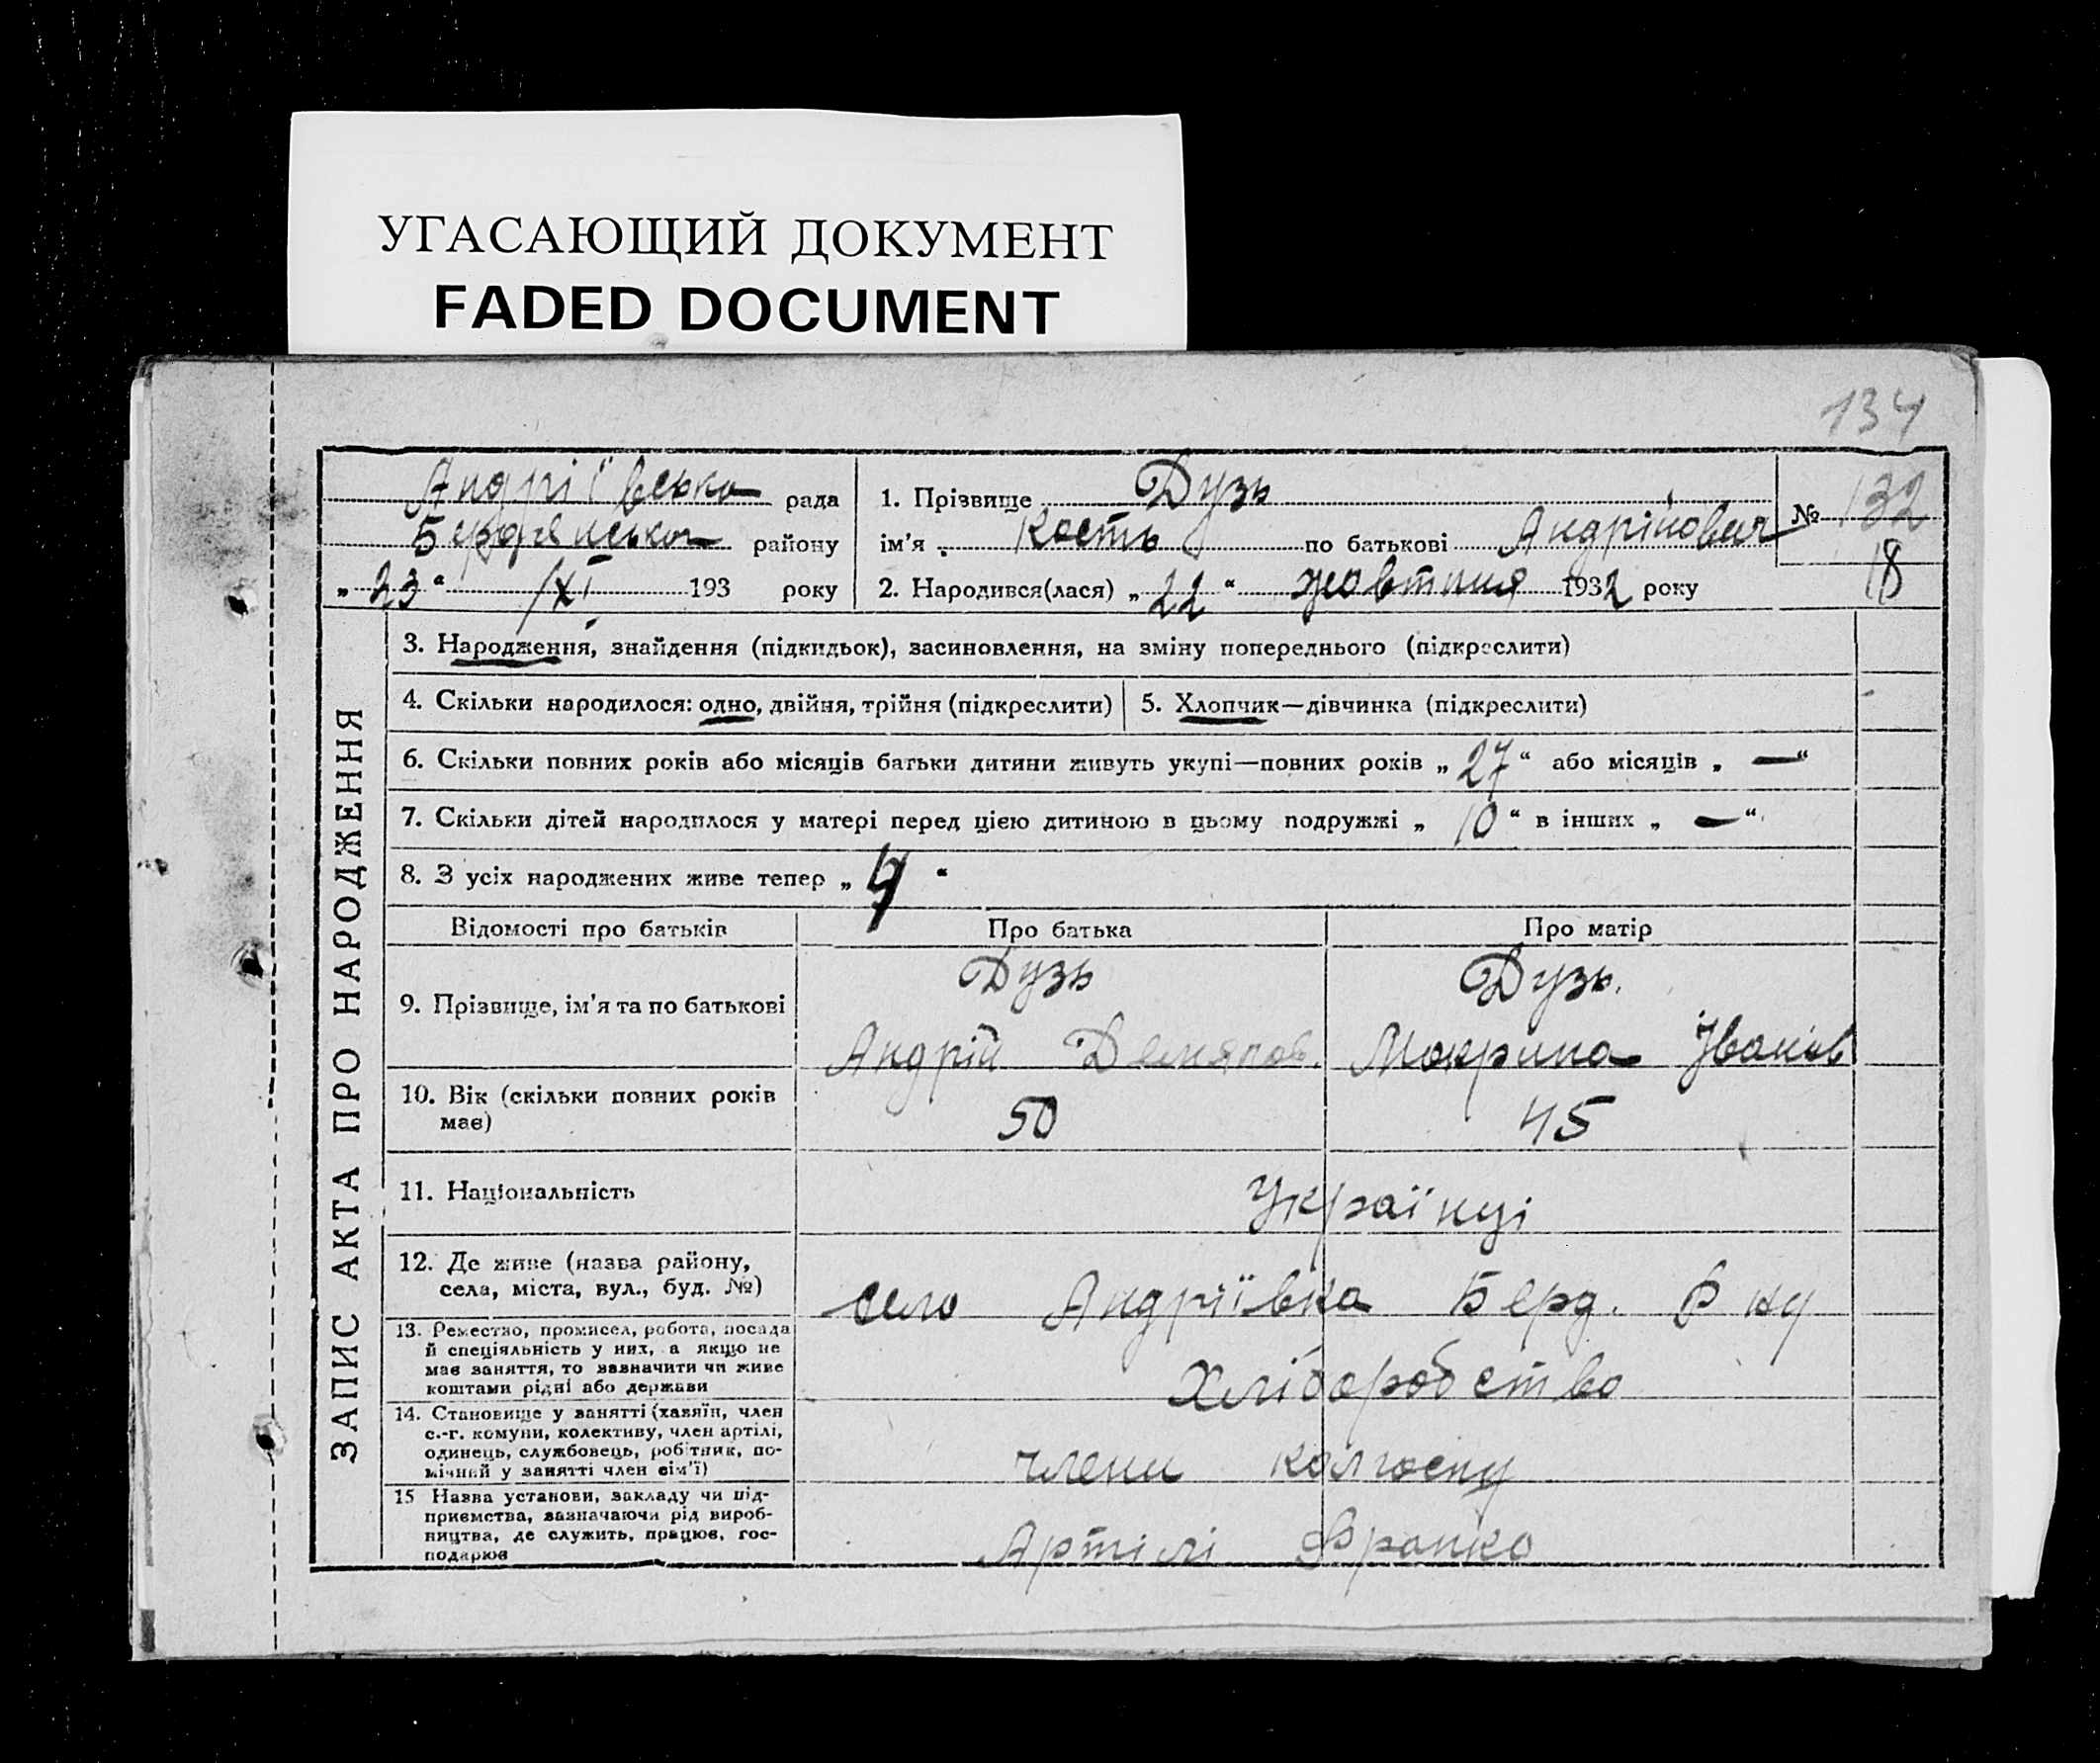 УГАСАЮЩИЙ ДОКУМЕНТ
FADED DOCUMENT
134
Андріївська рада
Бердянського району
„ 23 “ /XI 193 року
1. Прізвище Дузь
ім'я Кость по батькові Андрійович
2. Народився(лася) „ 22 “ жовтня 1932 року
№ 132
18
ЗАПИС АКТА ПРО НАРОДЖЕННЯ
3. Народження, знайдення (підкидьок), засиновлення, на зміну попереднього (підкреслити)
4. Скільки народилося: одно, двійня, трійня (підкреслити)
5. Хлопчик—дівчинка (підкреслити)
6. Скільки повних років або місяців батьки дитини живуть укупі—повних років „ 27 “ або місяців „ — “
7. Скільки дітей народилося у матері перед цією дитиною в цьому подружжі „ 10 “ в інших „ — “
8. З усіх народжених живе тепер „ “
Відомості про батьків Про батька Про матір
9. Прізвище, ім'я та по батькові
Дузь
Андрій Демянов.
Дузь.
Мокрина Іванів
10. Вік (скільки повних років
має)
50 45
11. Національність
Українці
12. Де живе (назва району,
села, міста, вул., буд. №)
село Андріївка Берд. Р ну
13. Ремество, промисел, робота, посада
й спеціяльність у них, а якщо не
має заняття, то зазначити чи живе
коштами рідні або держави
Хліборобство
14. Становище у занятті (хазяїн, член
с.-г. комуни, колективу, член артілі,
одинець, службовець, робітник, по-
мічний у занятті член сім'ї)
члени колгоспу
15 Назва установи, закладу чи під-
приємства, зазначаючи рід вироб-
ництва, де служить, працює, гос-
подарює
Артілі Франко